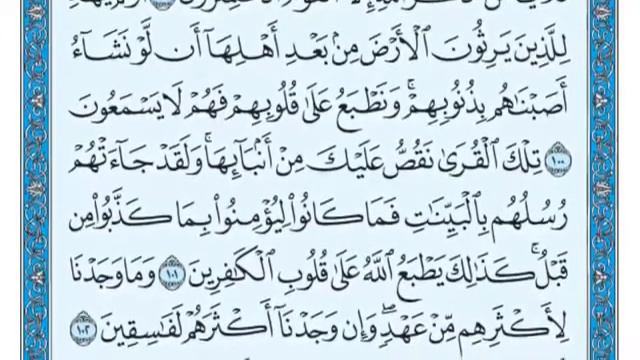 لِلَّذِينَ يَرِثُونَ الْأَرْضَ مِنۢ بَعْدِ أَهْلِهَآ أَن لَّوْ نَشَآءُ
أَصَبْنَاهُم بِذُنُوبِهِمْ ۚ وَنَطْبَعُ عَلَىٰ قُلُوبِهِمْ فَهُمْ لَا يَسْمَعُونَ
١٠٠ تِلْكَ الْقُرَىٰ نَقُصُّ عَلَيْكَ مِنْ أَنۢبَآئِهَا ۚ وَلَقَدْ جَآءَتْهُمْ
رُسُلُهُم بِالْبَيِّنَاتِ فَمَا كَانُوا۟ لِيُؤْمِنُوا۟ بِمَا كَذَّبُوا۟ مِن
قَبْلُ ۚ كَذَٰلِكَ يَطْبَعُ اللَّهُ عَلَىٰ قُلُوبِ الْكَٰفِرِينَ ١٠١ وَمَا وَجَدْنَا
لِأَكْثَرِهِم مِّنْ عَهْدٍ ۖ وَإِن وَجَدْنَآ أَكْثَرَهُمْ لَفَاسِقِينَ ١٠٢